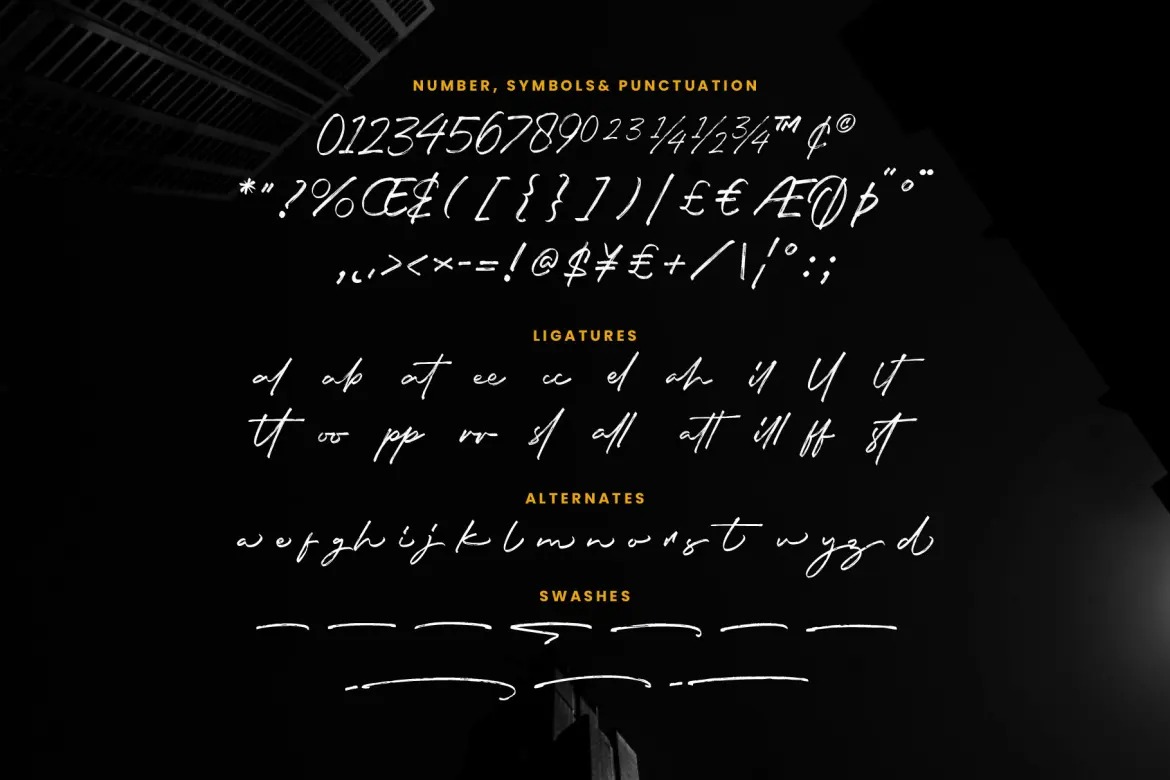 NUMBER, SYMBOLS& PUNCTUATION
01234567890 2 3 1/4 1/2 3/4 ™ ¢ ©
* " ? % Œ ( [ { } ] ) | £ € Æ Ø þ ˝ ° ¨
> < × - = ! @ $ ¥ £ + / \ ¦ ° : ;
LIGATURES
al ab at ee cc el ah il ll lt
tt oo pp rr sl all att ill ff st
ALTERNATES
a e f g h i j k l m n o r s t w y z d
SWASHES